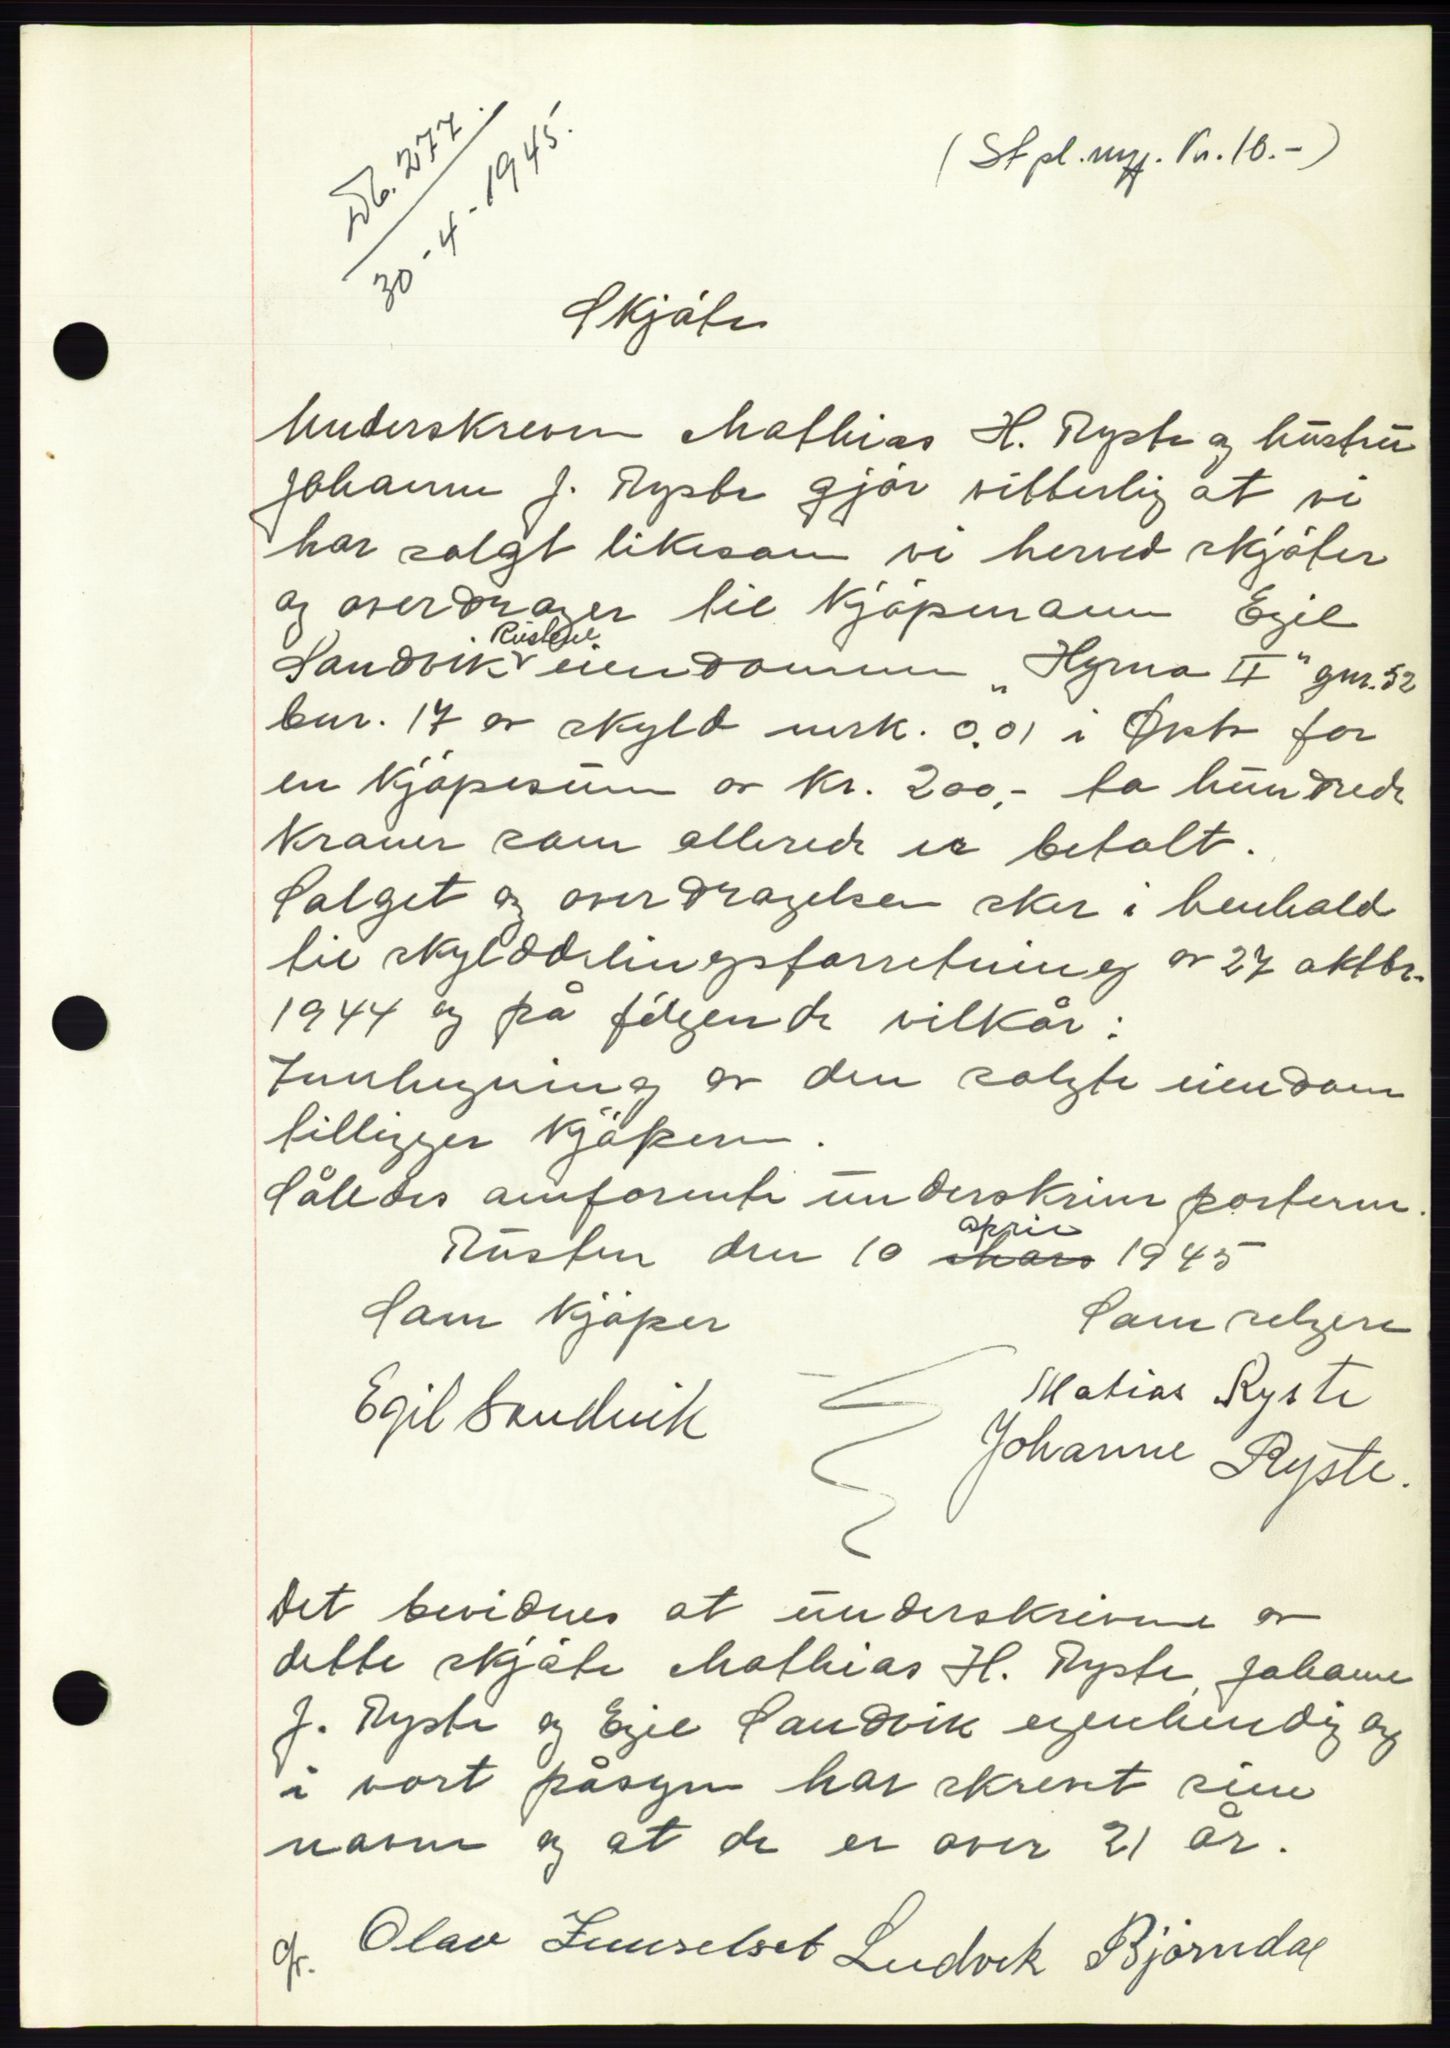 Db. 277
30-4-1945.
(St.pl. mrk. kr. 10.-)
Skjøte
Underskreven Mathias H. Ryste og hustru
Johanne J. Ryste gjør vitterlig at vi
har solgt likesom vi herved skjøter
og overdrager til kjøpmann Egil
Rustene
Sandvik eiendommen „Hyrna II" gnr. 52
bnr. 17 av skyld mrk. 0,01 i Ørsta for
en kjøpesum av kr. 200,- to hundrede
kroner som allerede er betalt.
Salget og overdragelsen sker i henhold
til skylddelingsforretning av 27 oktbr.
1944 og på følgende vilkår:
Innhegning av den solgte eiendom
tilligger kjøperen.
Således omforente underskriver parterne.
april
Rusten den 10 mars 1945
Som kjøper Som selgere
Egil Sandvik Matias Ryste
Johanne Ryste.
Det bevidnes at underskriverne av
dette skjøte Mathias H. Ryste, Johanne
J. Ryste og Egil Sandvik egenhendig og
i vort påsyn har skrevet sine
navne og at de er over 21 år.
Olav Ludvik Bjørndal